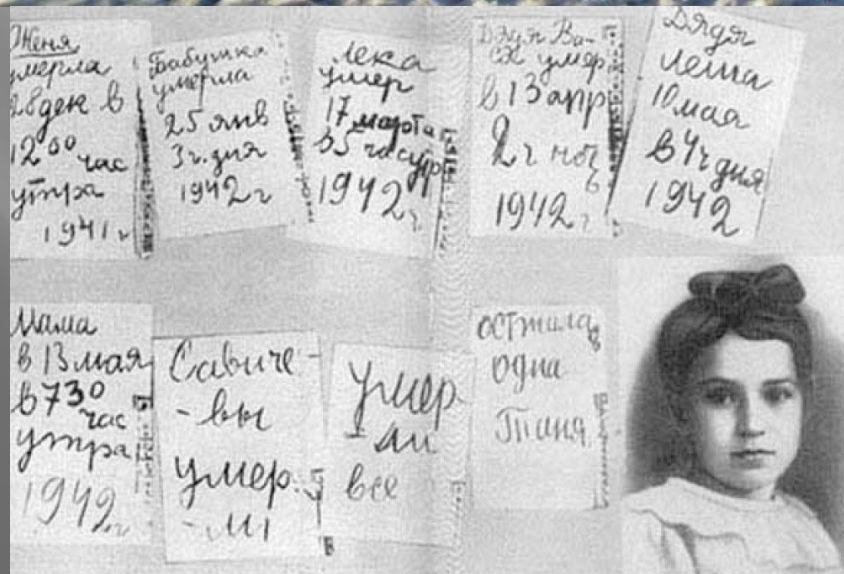 Женя
умерла
28 дек в
12 00 час
утра
1941 г
Бабушка
умерла
25 янв
3 ч. дня
1942 г
Лека
умер
17 марта
в 5 час утр
1942 г
Дядя Ва-
ся умер
в 13 апр
2 ч ноч
1942 г
Дядя
Леша
10 мая
в 4 ч дня
1942
Мама
в 13 мая
в 7 30
час
утра
1942 г
Савиче-
-вы
умер-
-ли
Умер
-ли
все
Осталась
одна
Таня.